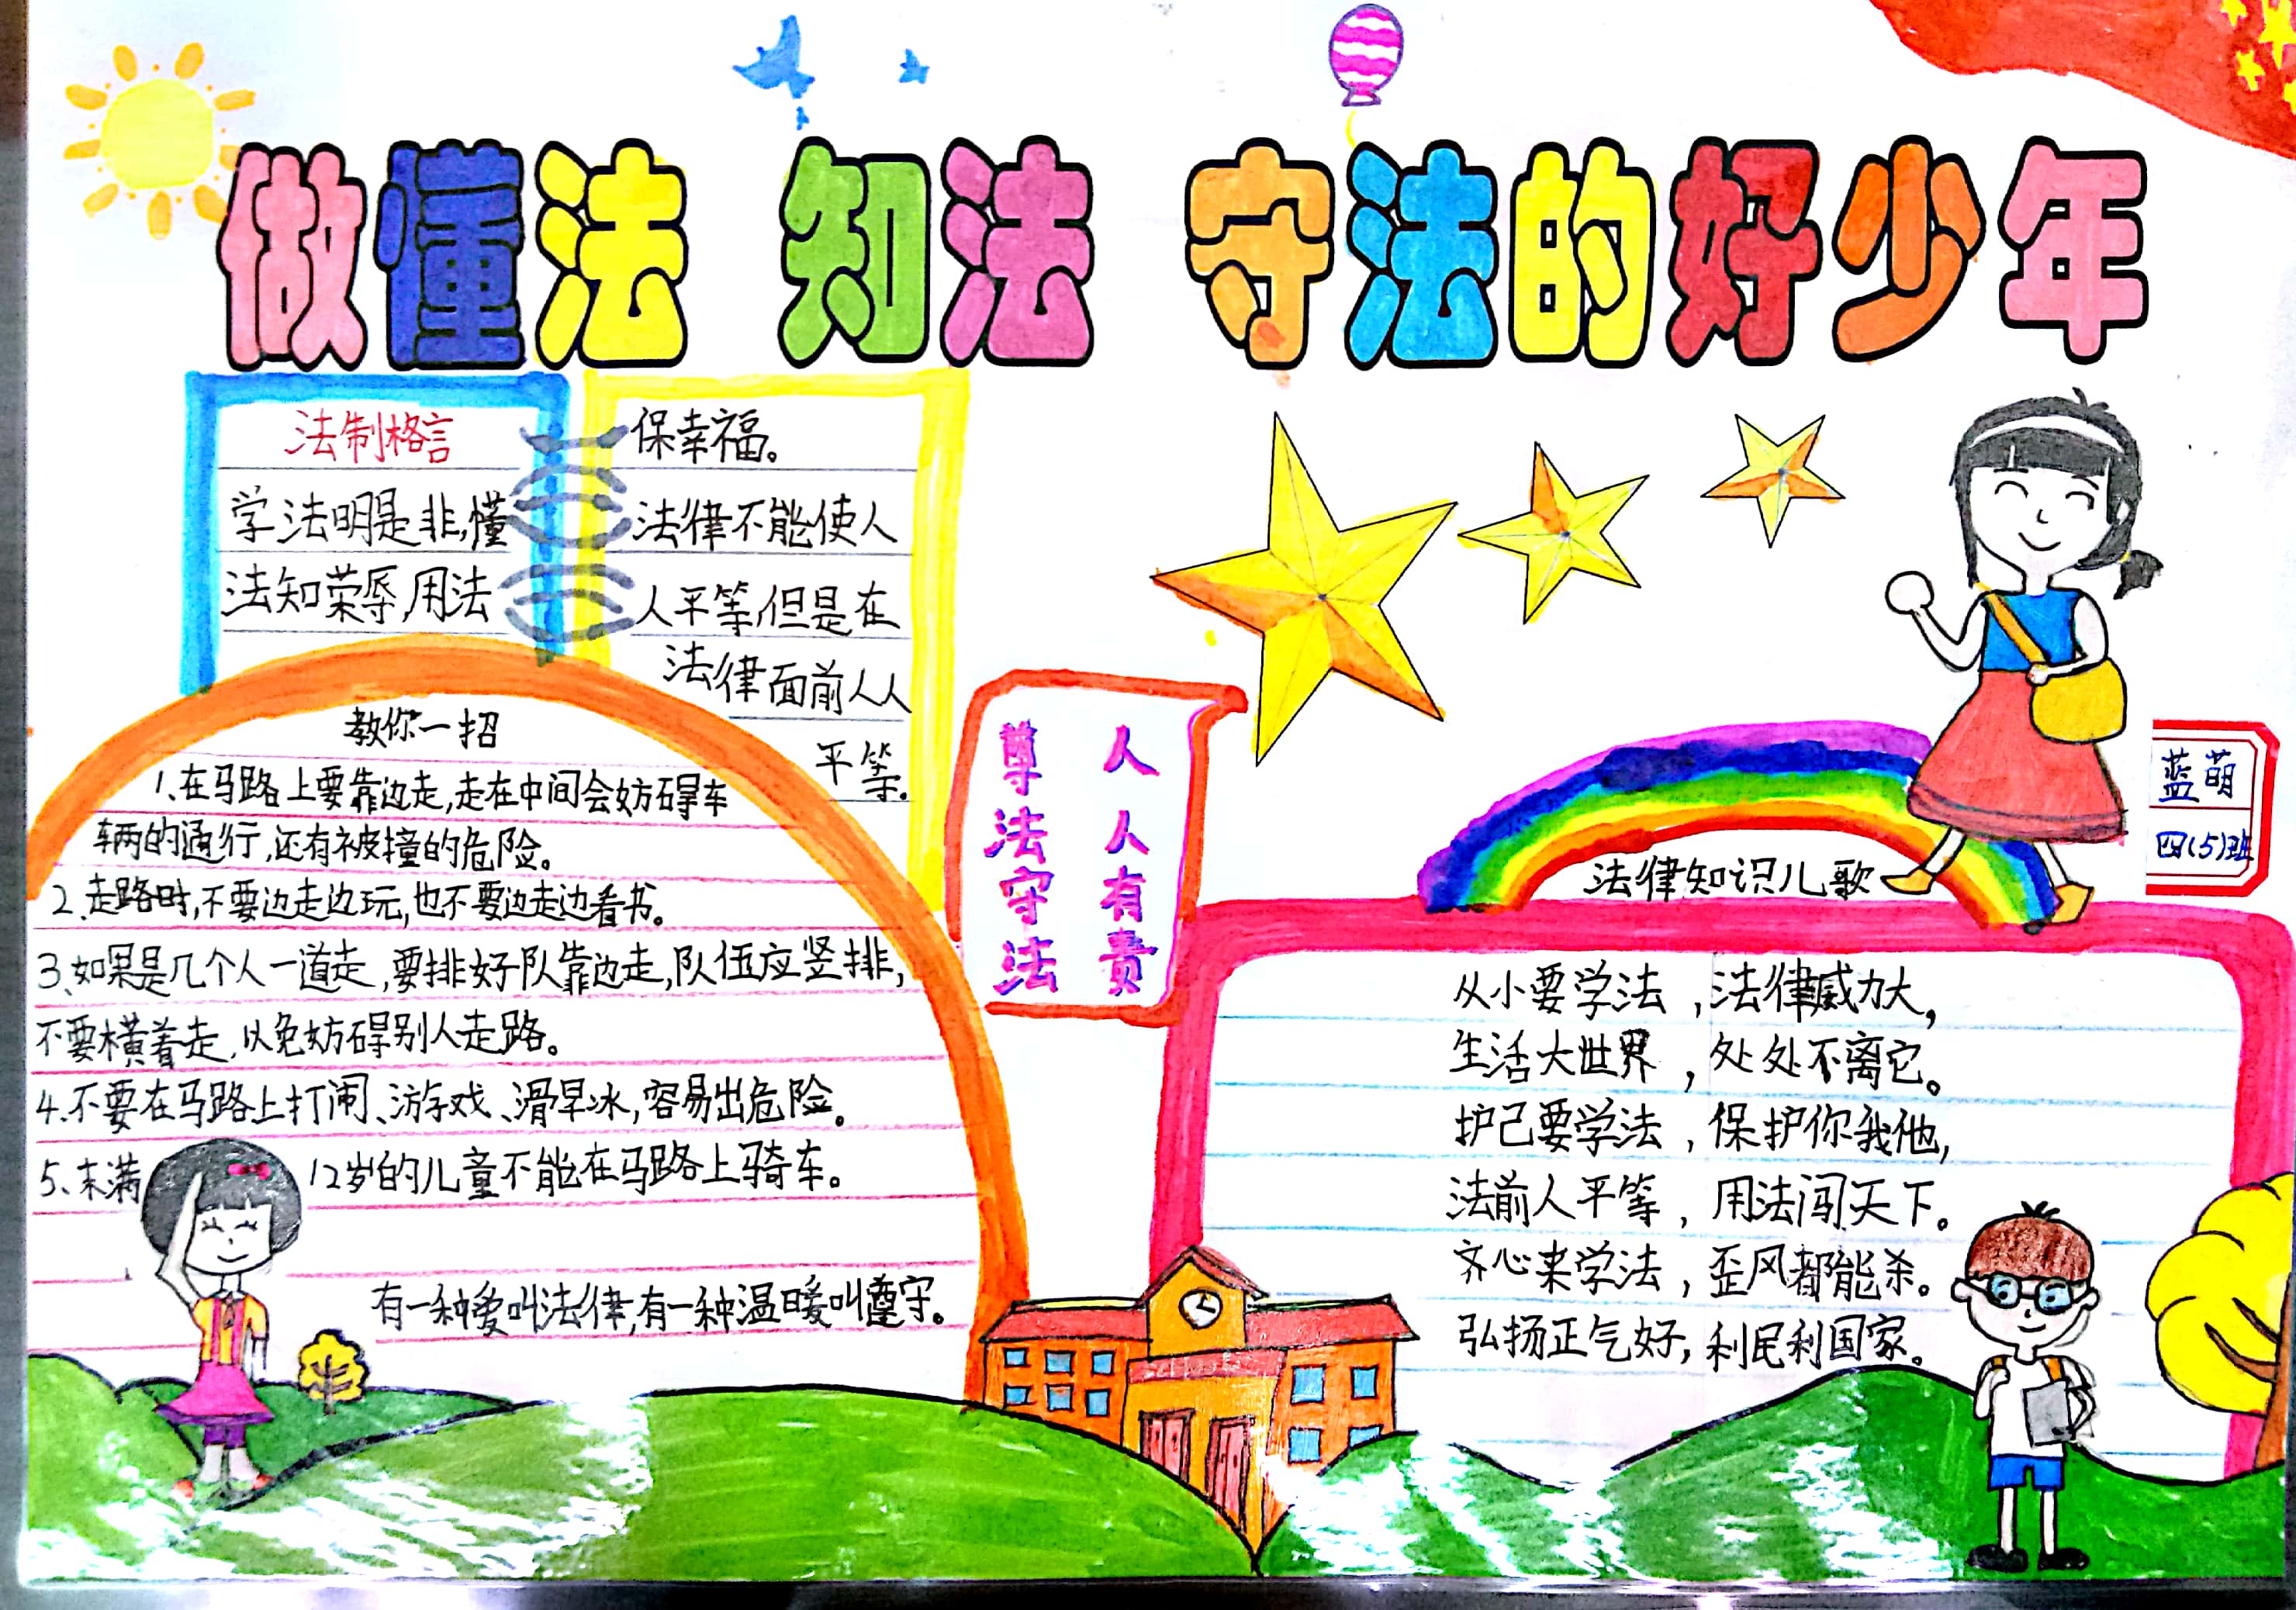 做懂法 知法 守法的好少年
法制格言
学法明是非,懂
法知荣辱,用法
保幸福。
法律不能使人
人平等,但是在
法律面前人人
平等.
教你一招
1、在马路上要靠边走,走在中间会妨碍车
辆的通行,还有被撞的危险。
2、走路时,不要边走边玩,也不要边走边看书。
3、如果是几个人一道走,要排好队靠边走,队伍应竖排,
不要横着走,以免妨碍别人走路。
4.不要在马路上打闹、游戏、滑旱冰,容易出危险。
5、未满12岁的儿童不能在马路上骑车。
有一种爱叫法律,有一种温暖叫遵守。
尊法守法
人人有责
蓝萌
四(5)班
法律知识儿歌
从小要学法,法律威力大,
生活大世界,处处不离它。
护己要学法,保护你我他,
法前人平等,用法闯天下。
齐心来学法,歪风都能杀。
弘扬正气好,利民利国家。